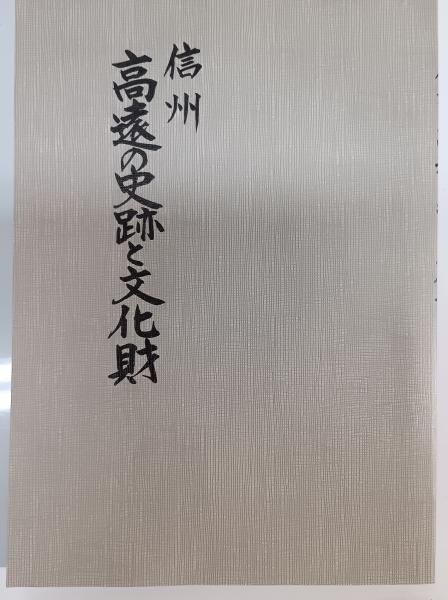 信州
高遠の史跡と文化財